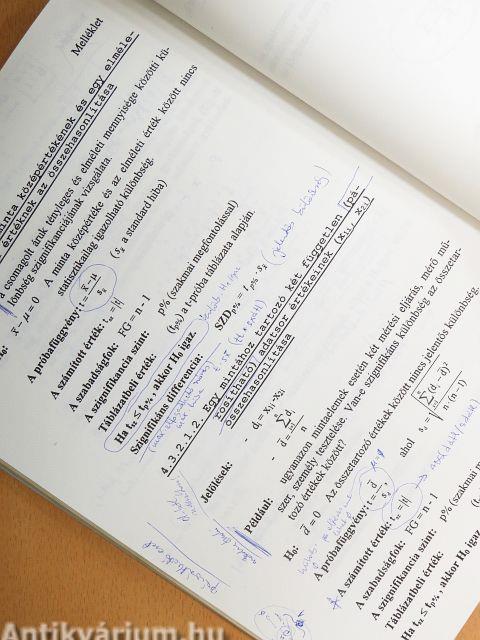 Melléklet
minta középértékének és egy elméle-
értéknek az összehasonlítása
a csomagolt áruk tényleges és elméleti mennyisége közötti kü-
lönbség szignifikanciájának vizsgálata.
x̄ - μ = 0 A minta középértéke és az elméleti érték között nincs
statisztikailag igazolható különbség.
A próbafüggvény: t = (x̄ - μ) / s_x̄ (s_x̄ a standard hiba)
A számított érték: t_sz = |t|
A szabadságfok: FG = n - 1
A szignifikancia szint: p% (szakmai megfontolással)
Táblázatbeli érték: (t_p%) a t-próba táblázata alapján.
Ha t_sz ≤ t_p%, akkor H₀ igaz.
Szignifikáns differencia: SZD_p% = t_p% · s_x̄
4.3.2.1.2. Egy mintához tartozó két független (pá-
rosítható) adatsor értékeinek (x₁ᵢ, x₂ᵢ)
összehasonlítása
Jelölések: - dᵢ = x₁ᵢ - x₂ᵢ
- d̄ = Σdᵢ / n
Például: ugyanazon mintaelemek esetén két mérési eljárás, mérő mű-
szer, személy tesztelése. Van-e szignifikáns különbség az összetar-
tozó értékek között?
H₀: d̄ = 0 Az összetartozó értékek között nincs jelentős különbség.
A próbafüggvény: t = d̄ / s_x̄ ahol s_x̄ = √(Σ(dᵢ - d̄)² / n(n-1))
A számított érték: t_sz = |t|
A szabadságfok: FG = n - 1
A szignifikancia szint: p% (szakmai m
Táblázatbeli érték: (t
Ha t_sz ≤ t_p%, akkor H₀ igaz
Antikvárium.hu